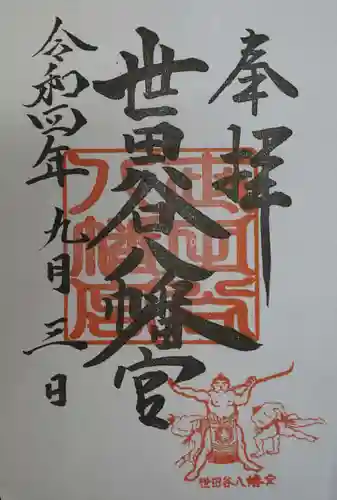 奉拝
世田谷八幡宮
令和四年九月三日
世田谷八幡宮
世田谷八幡宮